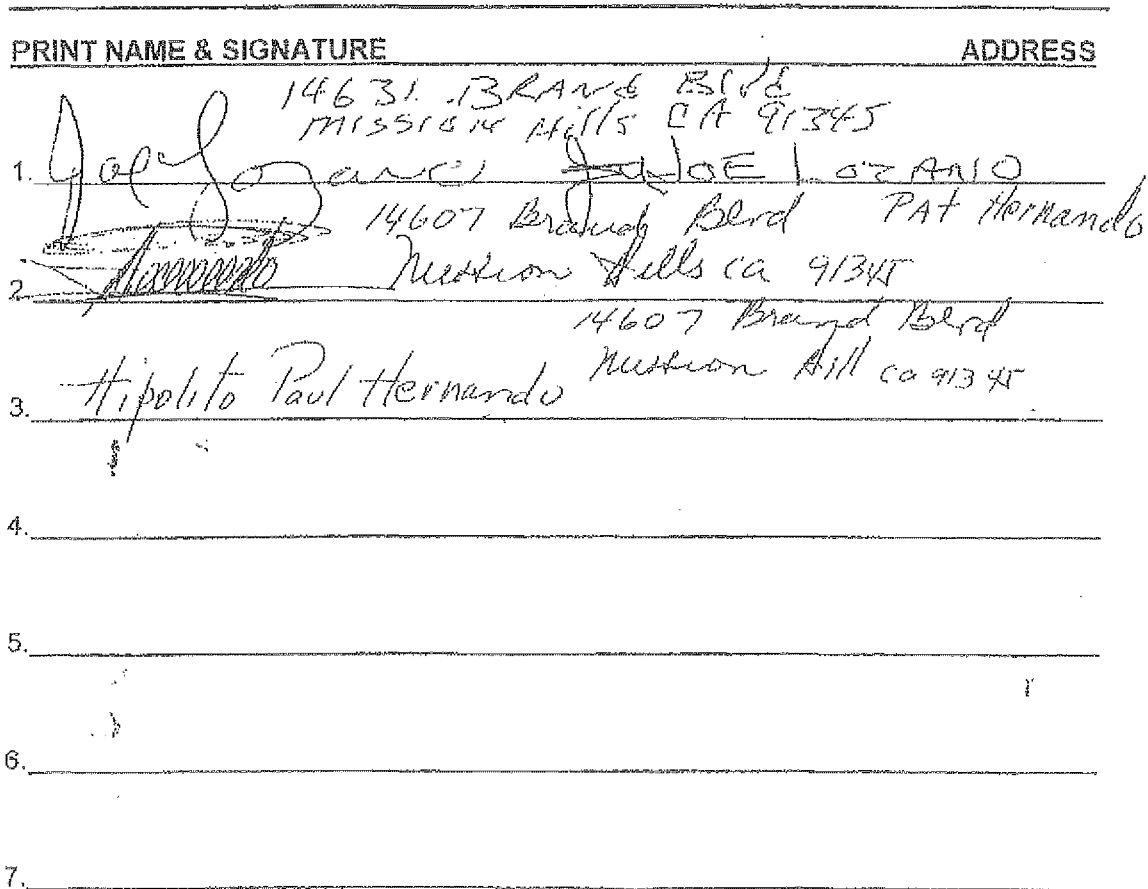 PRINT NAME & SIGNATURE ADDRESS
14631 BRAND Blvd
MISSION Hills CA 91345
1. Joe Lozano JOE LOZANO
14607 Brand Blvd PAT Hernando
2. Mission Hills ca 91345
14607 Brand Blvd
Mission Hill ca 91345
3. Hipolito Paul Hernando
4.
5.
6.
7.